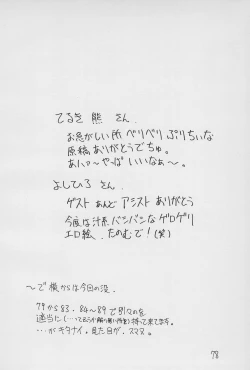 てるき 熊 さん
お急がしい所 ペリペリ ぷりちぃな
原稿ありがとうでちゅ。
あぃっ〜 やっぱ いいなぁ〜。
よしひろ さん
ゲスト あんど アシスト ありがとう
今度は汁系 バンバンな ゲログリ
エロ絵、たのむで！(笑)
〜で 横からは今回の没。
79から83、84〜89で別々のを
適当に 持って来てます。
…が キタナイ。見た目が。スマヌ。
78